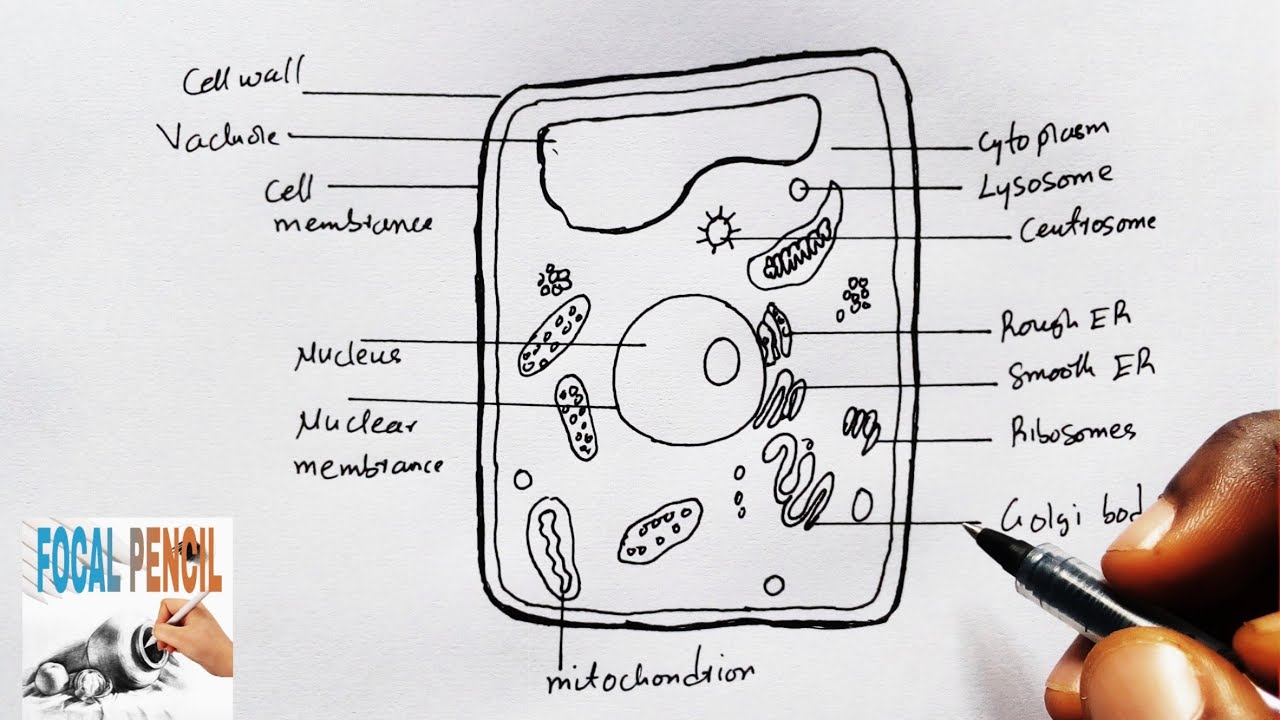 Cell wall
Vacuole
Cell
membrance
Nucleus
Nuclear
membrance
mitochondrion
Cytoplasm
Lysosome
Centrosome
Rough ER
Smooth ER
Ribosomes
Golgi bod
FOCAL PENCIL